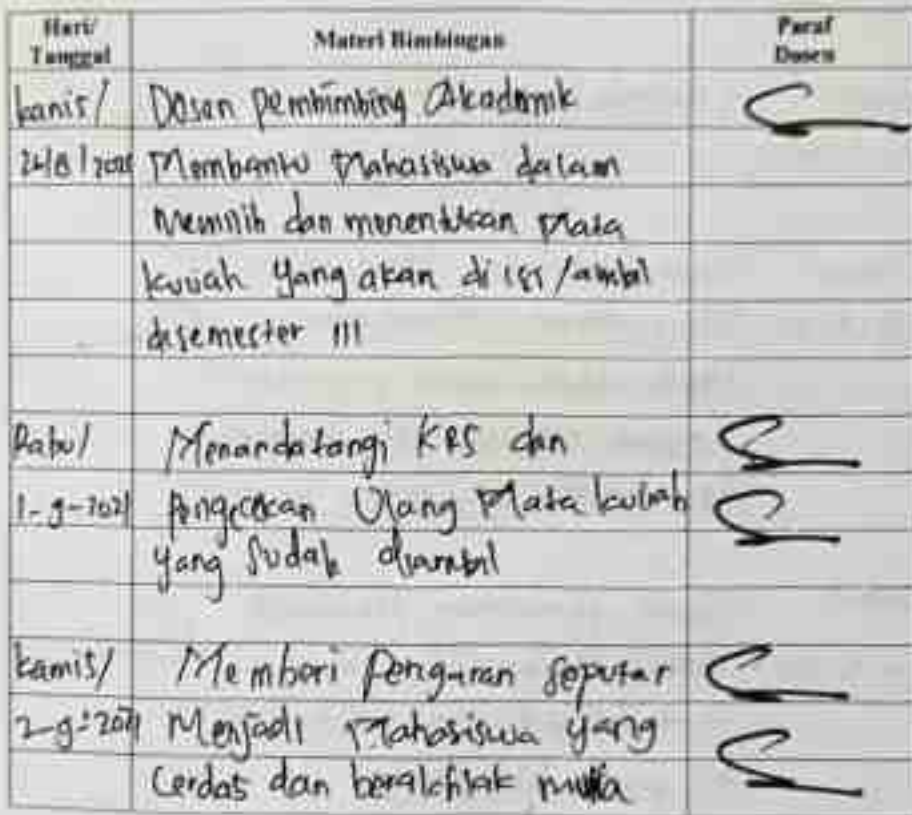 Hari/ Tanggal Materi Bimbingan Paraf Dosen
kamis/ Dosen pembimbing Akademik
Membantu Mahasiswa dalam
memilih dan menentukan Mata
kuliah yang akan di isi/ambil
disemester III
Rabu/ Menandatangi KRS dan
1-9-2021 pengecekan Ulang Mata kuliah
yang sudah diambil
kamis/ Memberi pengaran seputar
2-9-2021 Menjadi Mahasiswa yang
Cerdas dan beralchlak mulia